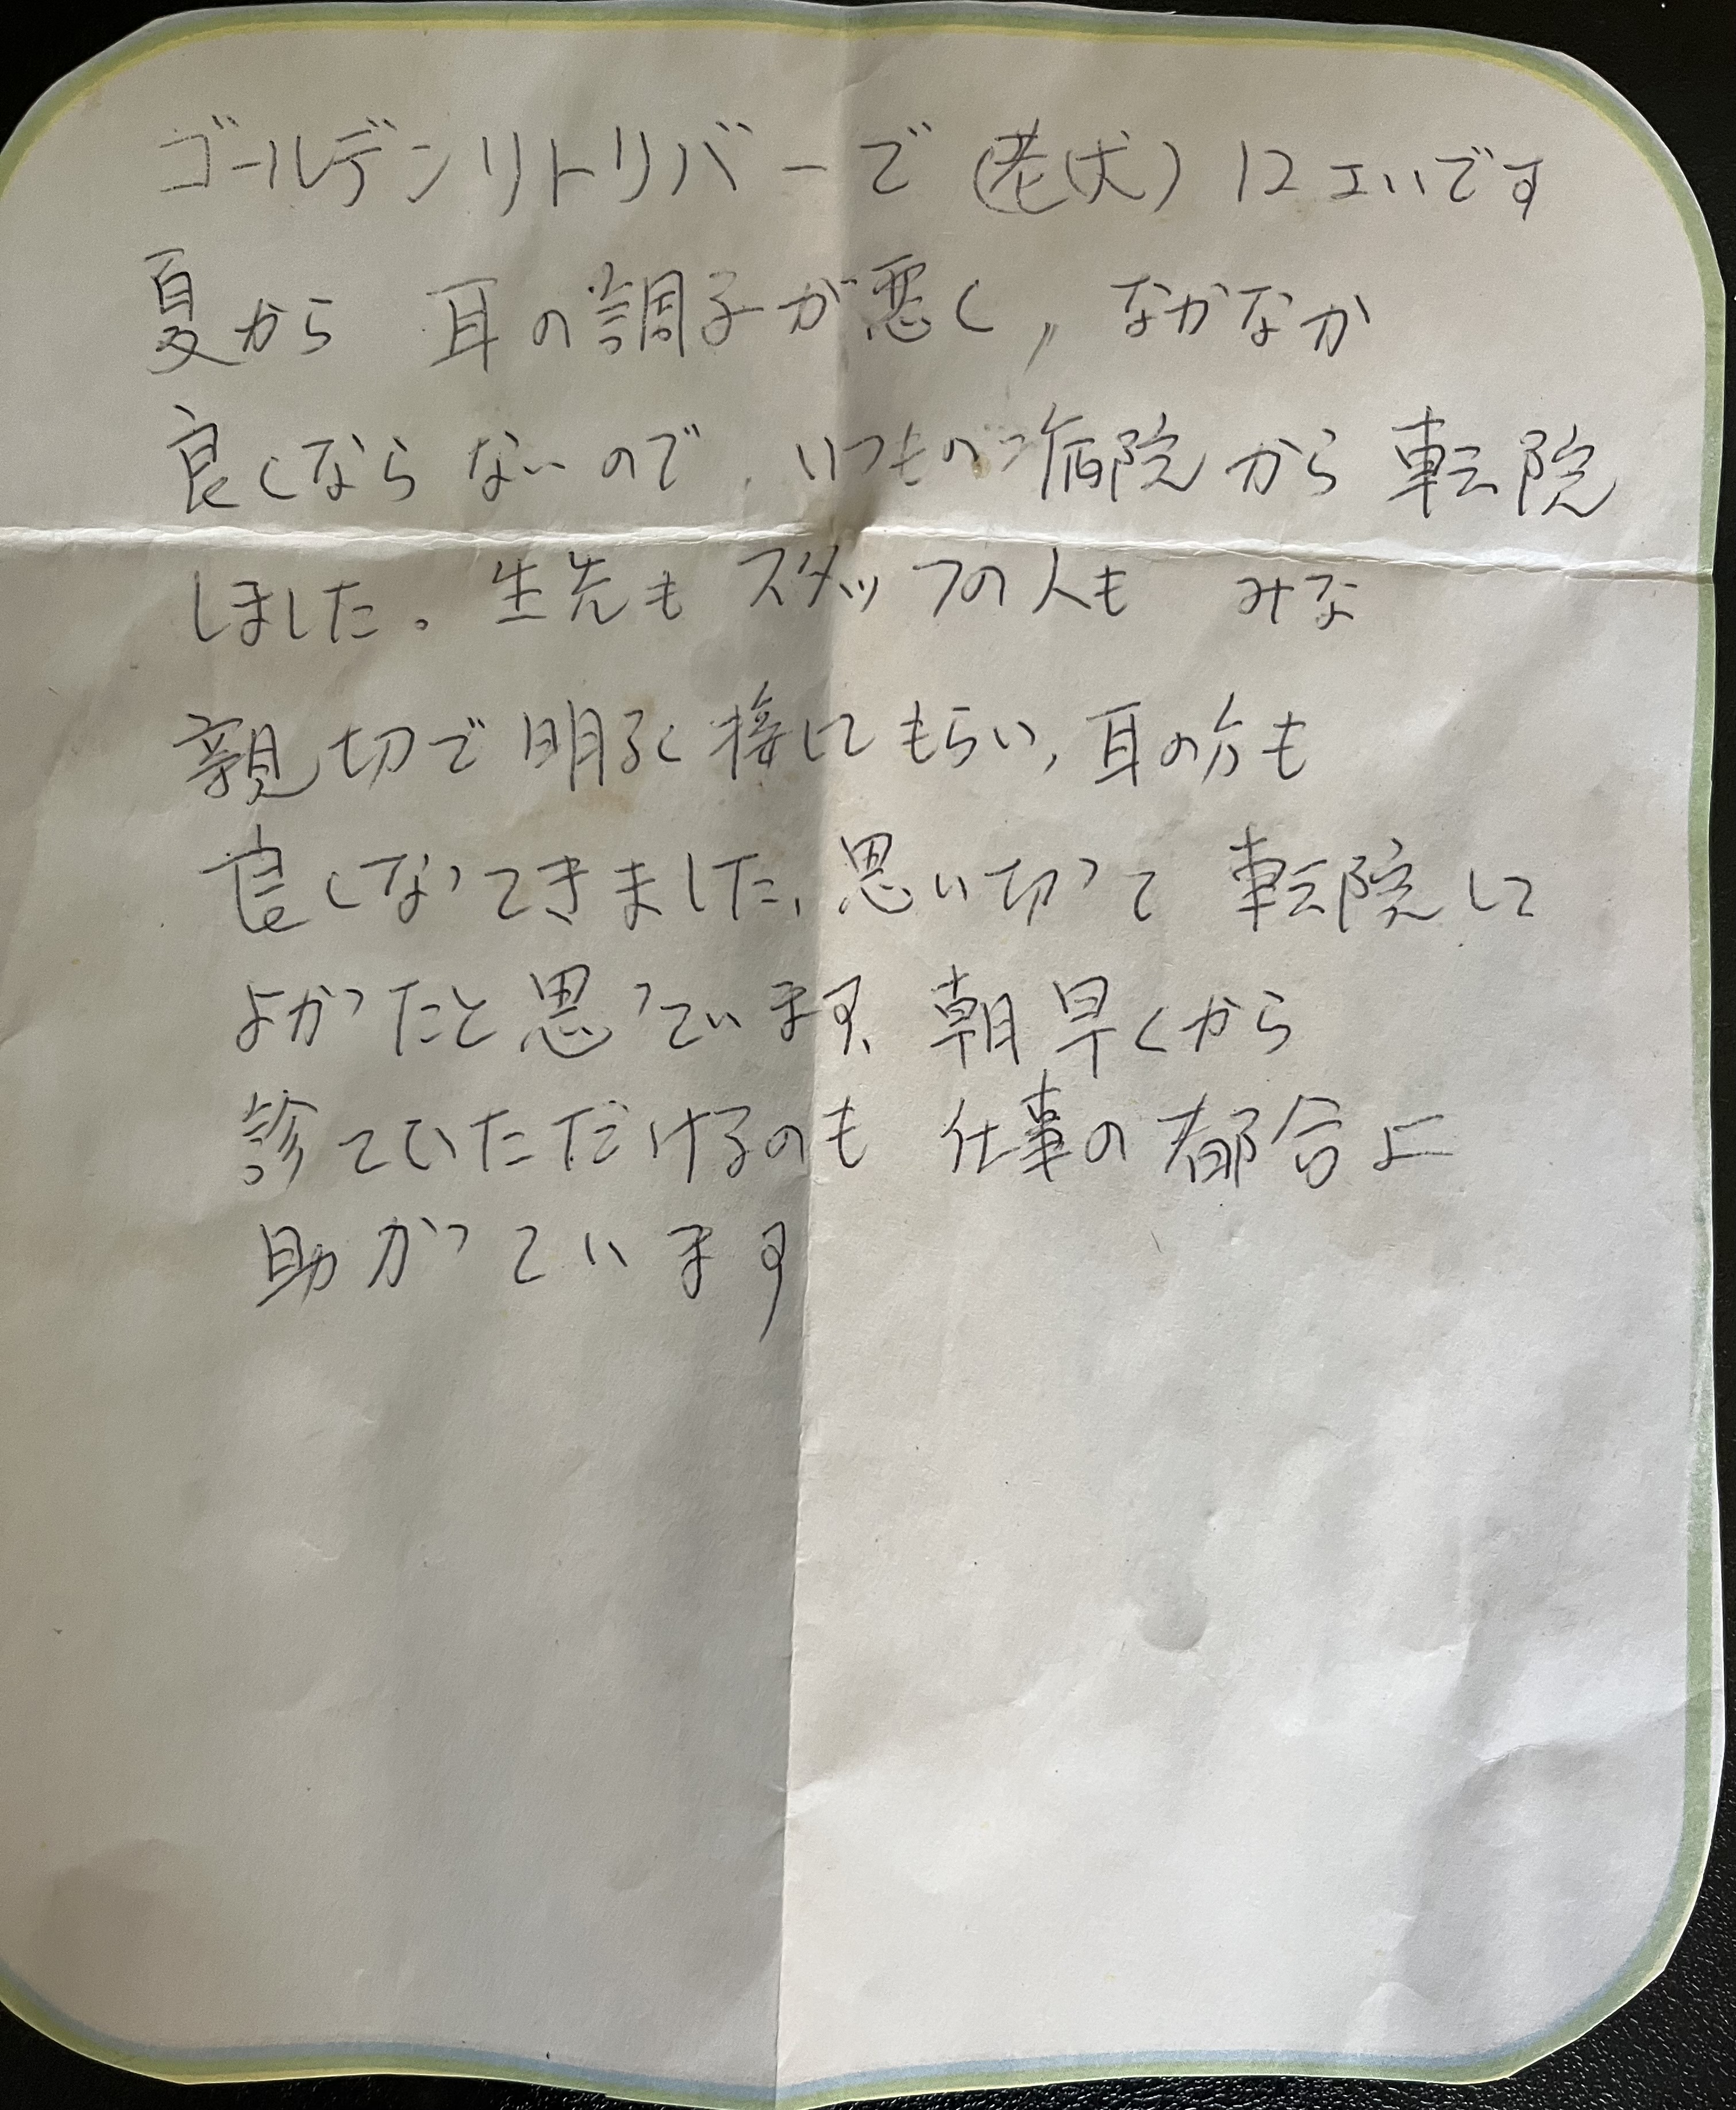 ゴールデンリトリバーで（老犬）12エいです
夏から 耳の調子が悪く, なかなか
良くならないので, いつもの 病院から転院
しました。生先も スタッフの人も みな
親切で明るく接してもらい, 耳の方も
良くなってきました, 思い切って 転院して
よかったと思っています, 朝早くから
診ていただけるのも 仕事の都合上
助かっています